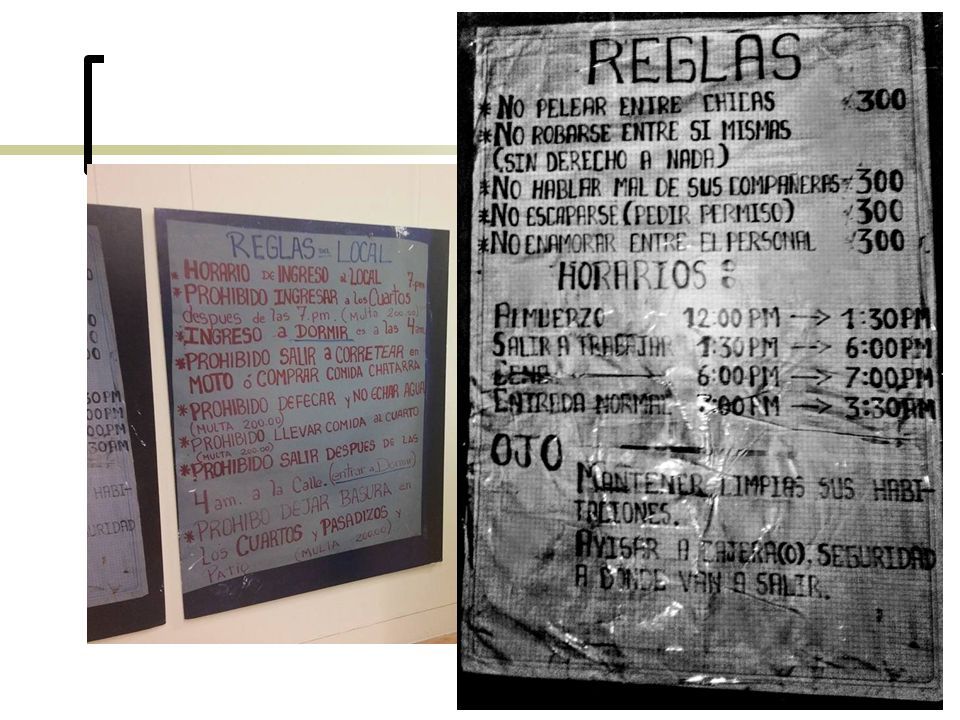 REGLAS DEL LOCAL
* HORARIO DE INGRESO al LOCAL 7.pm
* PROHIBIDO INGRESAR a los Cuartos
despues de las 7.pm. (MULTA 200.00)
* INGRESO a DORMIR es a las 4 am.
* PROHIBIDO SALIR a CORRETEAR en
MOTO ó COMPRAR COMIDA CHATARRA
* PROHIBIDO DEFECAR y NO ECHAR AGUA
(MULTA 200.00)
* PROHIBIDO LLEVAR COMIDA al CUARTO
(MULTA 200.00)
* PROHIBIDO SALIR DESPUES DE LAS
4 am. a la Calle. (entrar a Dormir)
* PROHIBO DEJAR BASURA en
LOS CUARTOS y PASADIZOS y
PATIO (MULTA 200.00)
50 PM
00 PM
00 PM
30 AM
HABI-
URIDAD
REGLAS
* NO PELEAR ENTRE CHICAS 300
* NO ROBARSE ENTRE SI MISMAS
(SIN DERECHO A NADA)
* NO HABLAR MAL DE SUS COMPAÑERAS 300
* NO ESCAPARSE (PEDIR PERMISO) 300
* NO ENAMORAR ENTRE EL PERSONAL 300
HORARIOS:
ALMUERZO 12:00 PM --> 1:30 PM
SALIR A TRABAJAR 1:30 PM --> 6:00 PM
CENA 6:00 PM --> 7:00 PM
ENTRADA NORMAL 7:00 PM --> 3:30 AM
OJO
MANTENER LIMPIAS SUS HABI-
TACIONES.
AVISAR A CAJERA(O), SEGURIDAD
A DONDE VAN A SALIR.